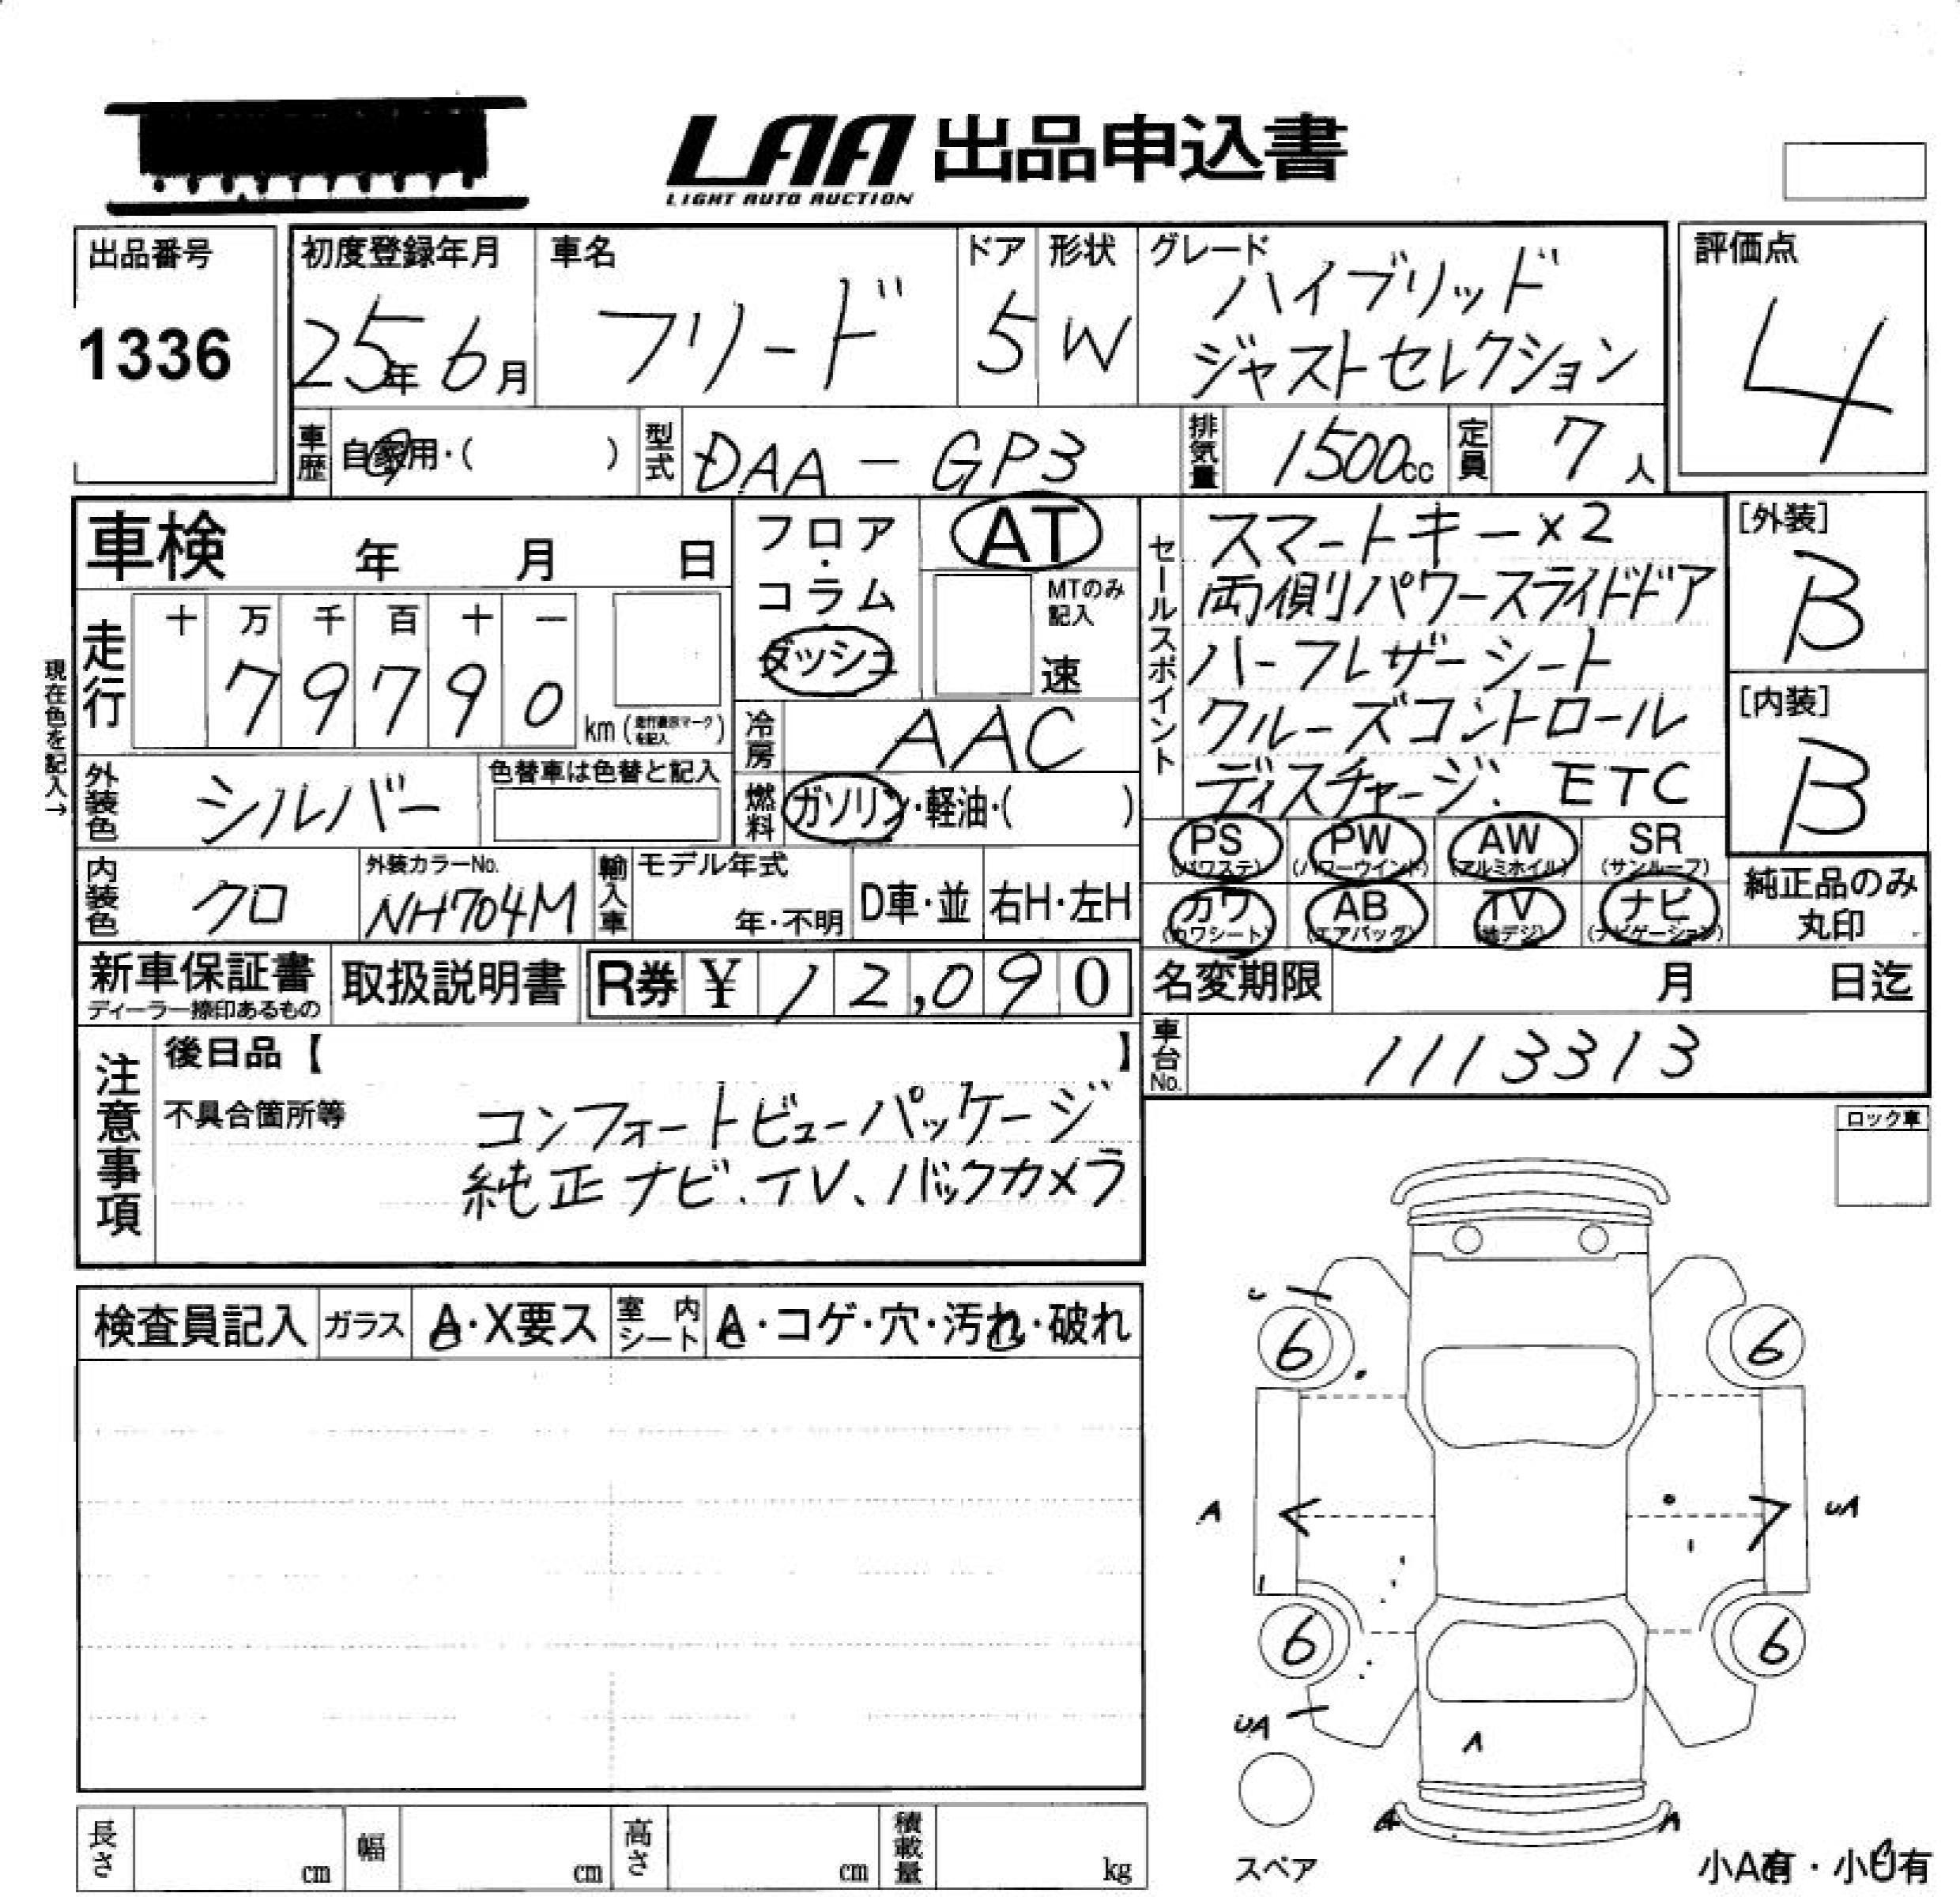 LAA 出品申込書
LIGHT AUTO AUCTION
出品番号
1336
初度登録年月
25年 6月
車名
フリード
ドア
5
形状
W
グレード
ハイブリッド
ジャストセレクション
評価点
4
車歴
自家用・( )
型式
DAA-GP3
排気量
1500cc
定員
7人
車検 年 月 日
フロア・コラム・ダッシュ
AT
MTのみ記入
速
セールスポイント
スマートキー×2
両側パワースライドドア
ハーフレザーシート
クルーズコントロール
ディスチャージ. ETC
[外装]
B
[内装]
B
現在色を記入→
走行
十 万 千 百 十 一
7 9 7 9 0
km(走行表示マークを記入)
冷房
AAC
外装色
シルバー
色替車は色替と記入
燃料
ガソリン・軽油・( )
PS (パワステ)
PW (パワーウインド)
AW (アルミホイル)
SR (サンルーフ)
カワ (カワシート)
AB (エアバッグ)
TV (地デジ)
ナビ (ナビゲーション)
純正品のみ
丸印
内装色
クロ
外装カラーNo.
NH704M
輸入車
モデル年式
年・不明
D車・並
右H・左H
新車保証書
ディーラー捺印あるもの
取扱説明書
R券 ¥ 12,090
名変期限 月 日迄
車台No.
1113313
注意事項
後日品【 】
不具合箇所等
コンフォートビューパッケージ
純正ナビ.TV、バックカメラ
ロック車
検査員記入
ガラス
A・X要ス
室内シート
A・コゲ・穴・汚れ・破れ
6
6
A
UA
6
6
UA
A
A
スペア
小A有・小U有
長さ cm
幅 cm
高さ cm
積載量 kg